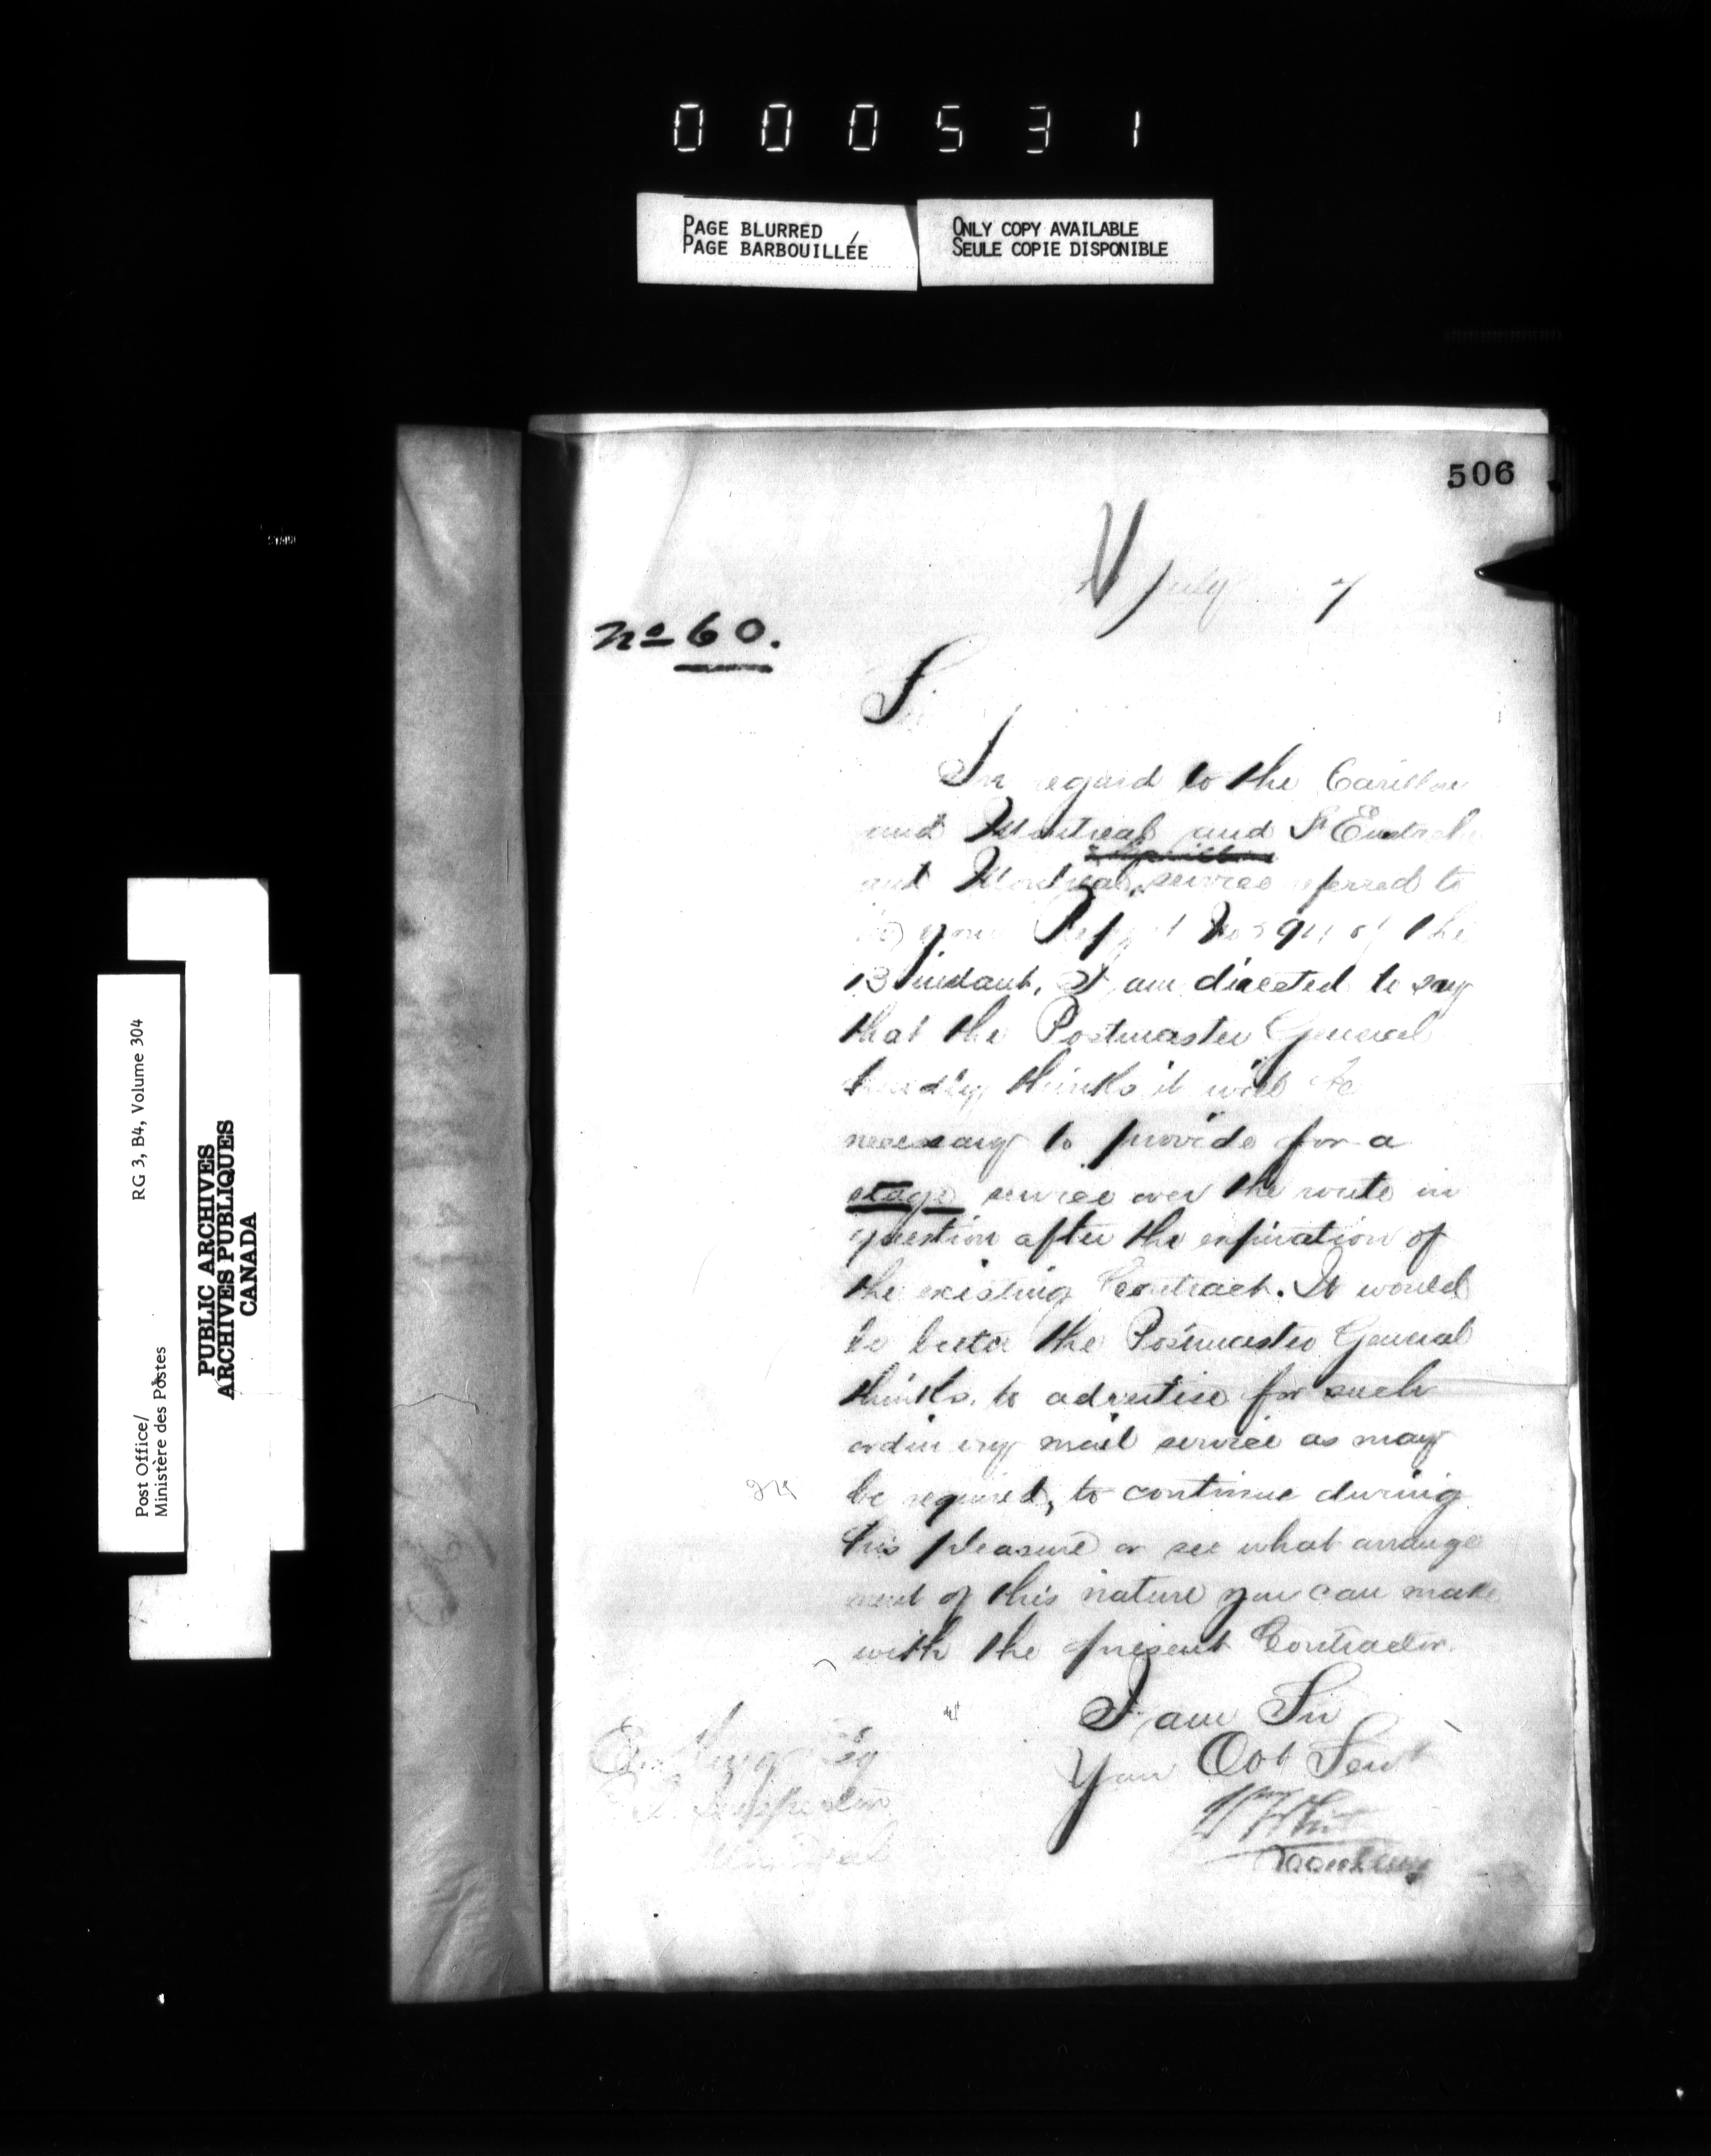 000531
PAGE BLURRED
PAGE BARBOUILLÉE
ONLY COPY AVAILABLE
SEULE COPIE DISPONIBLE
506
July 7
No 60.
Sir
In regard to the Carillon
and Montreal and St Eustache
and Montreal service referred to
your Report No of the
13 instant, I am directed to say
that the Postmaster General
hardly thinks it will be
necessary to provide for a
stage service over the route in
question after the expiration of
the existing Contract. It would
be better the Postmaster General
thinks, to advertise for such
ordinary mail service as may
be required, to continue during
his pleasure or see what arrange
ment of this nature you can make
with the present Contractor.
I am Sir
Your Obt Servt
W White
Secretary
King Esq
P.O. Inspector
Montreal
Post Office/
Ministère des Postes
RG 3, B4, Volume 304
PUBLIC ARCHIVES
ARCHIVES PUBLIQUES
CANADA